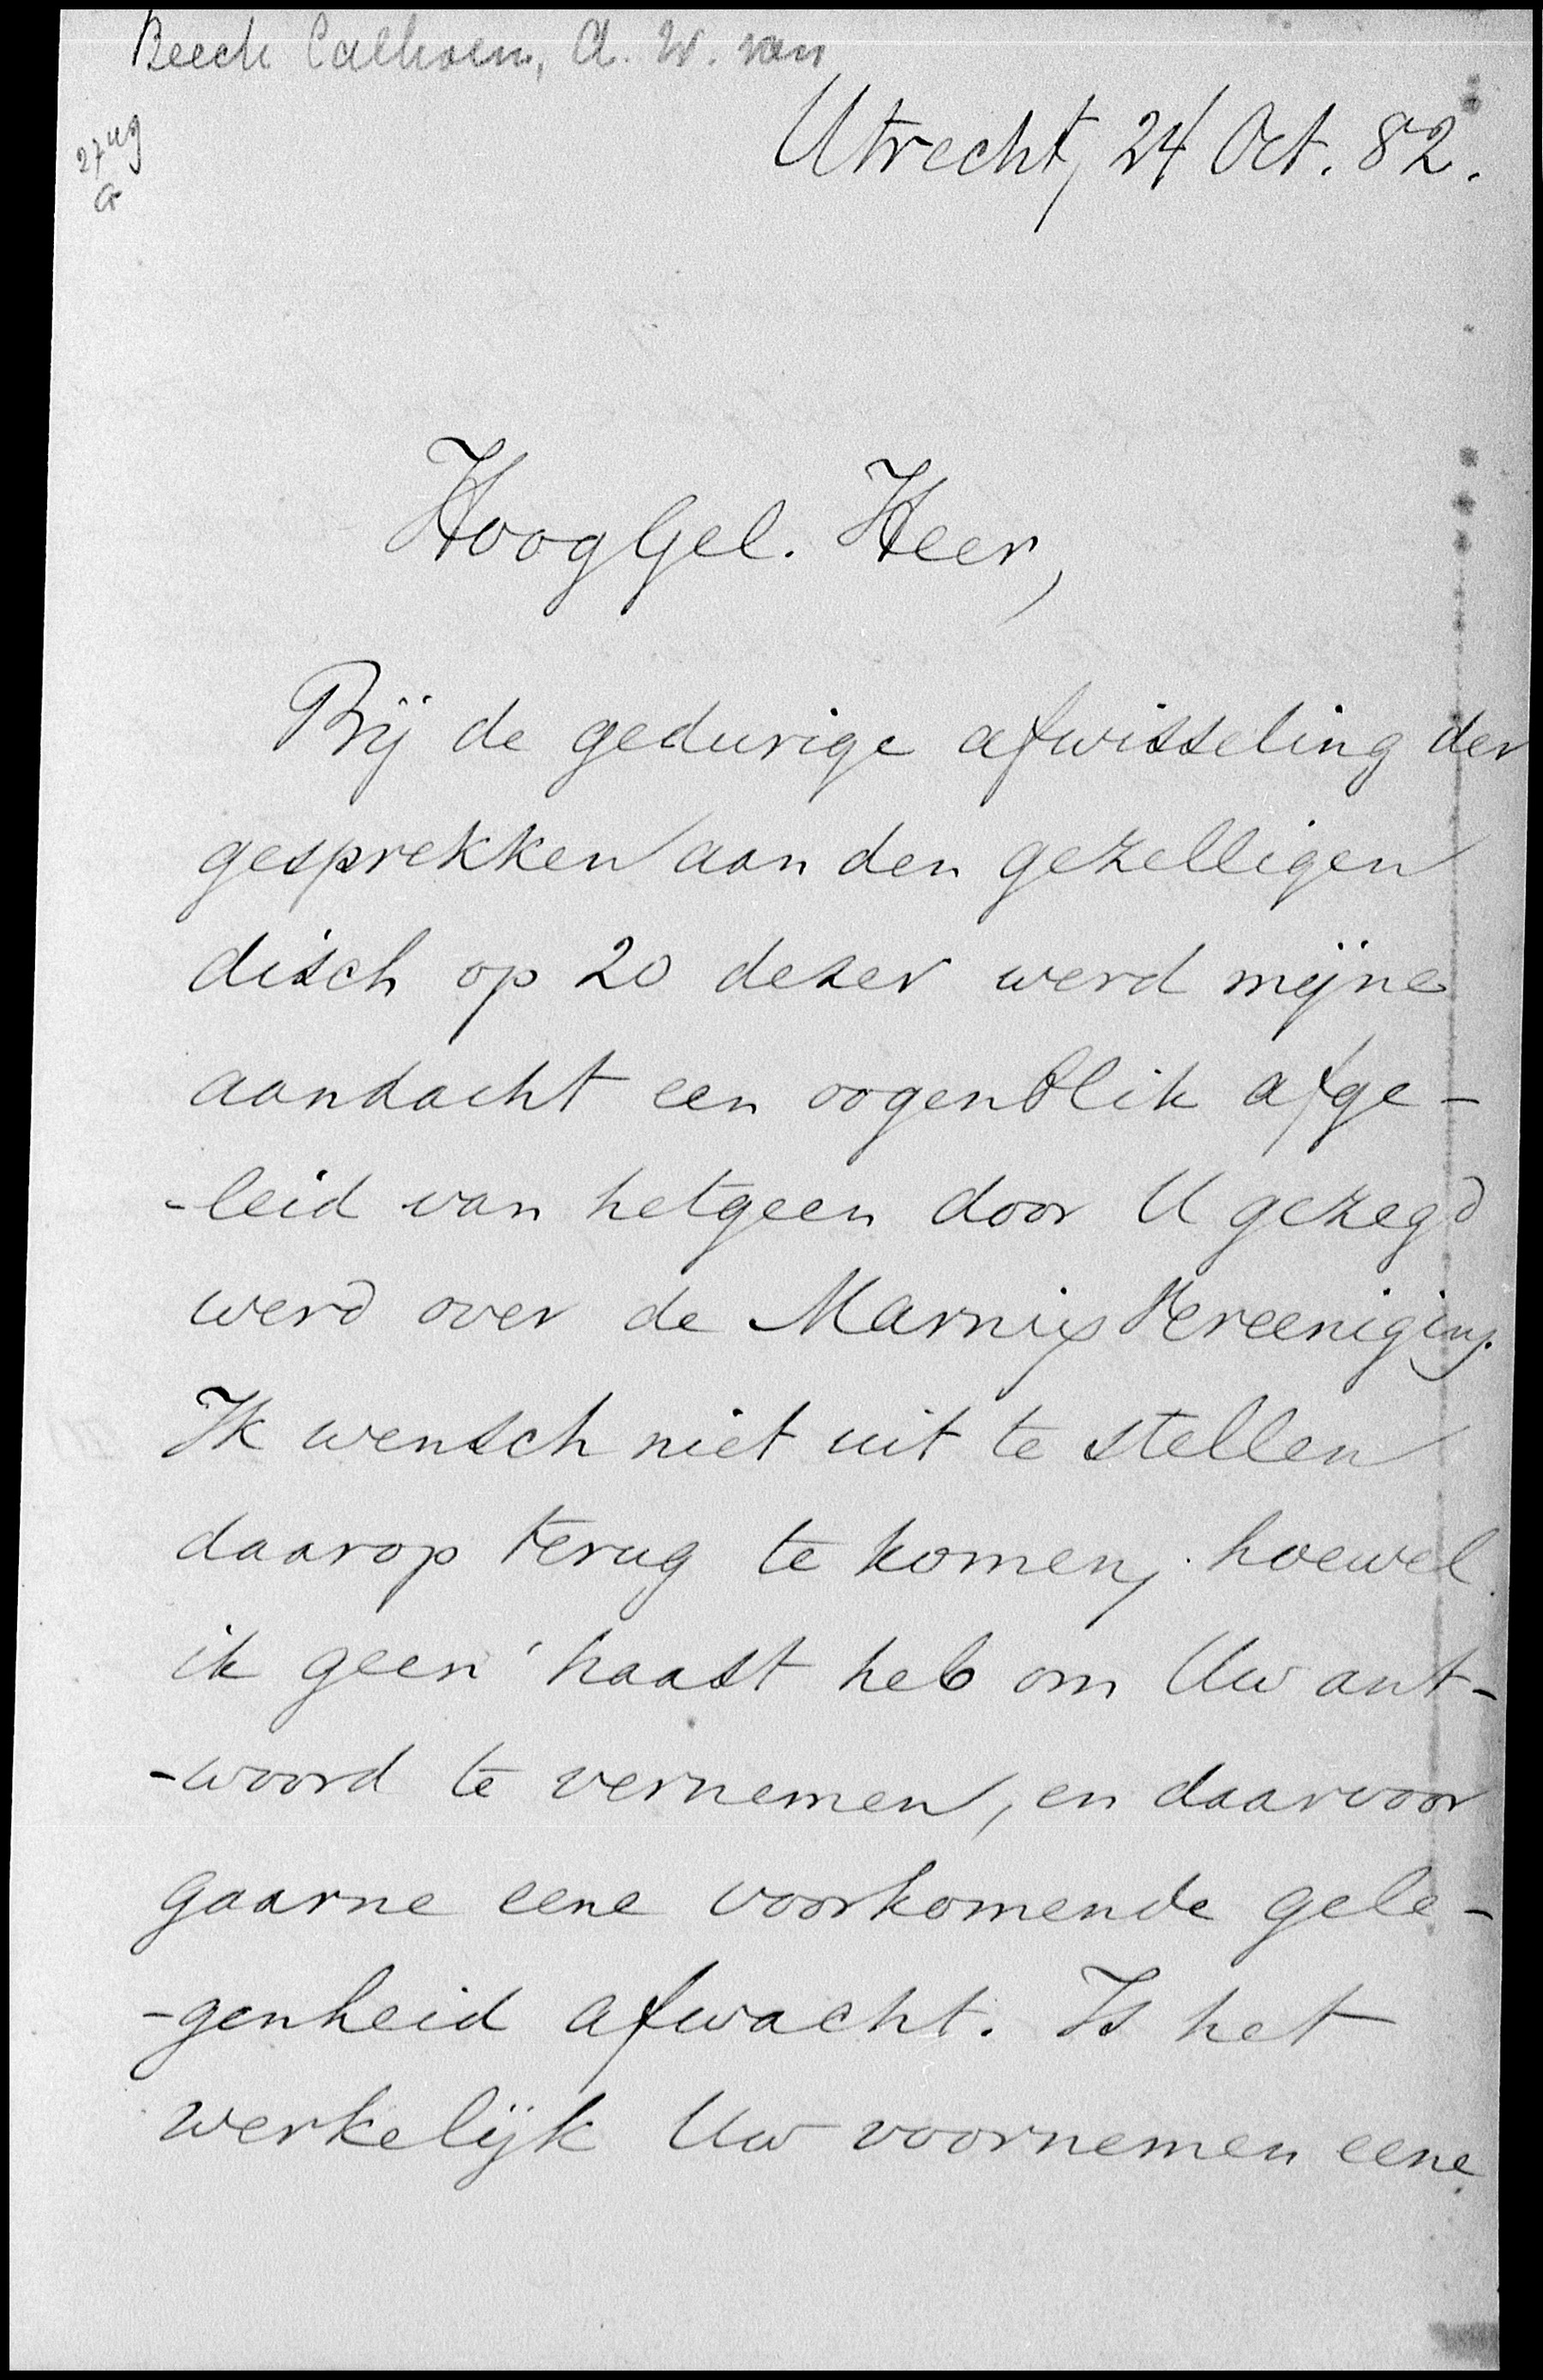 Beeck Calkoen, A. W. van
Utrecht, 24 Oct. 82.
27
HoogGel. Heer,
Bij de gedurige afwisseling der
gesprekken aan den gezelligen
disch op 20 dezer werd mijne
aandacht een oogenblik afge-
-leid van hetgeen door U gezegd
werd over de Marnix Vereeniging.
Ik wensch niet uit te stellen
daarop terug te komen, hoewel
ik geen haast heb om Uw ant-
-woord te vernemen, en daarvoor
gaarne eene voorkomende gele-
-genheid afwacht. Is het
werkelijk Uw voornemen eene